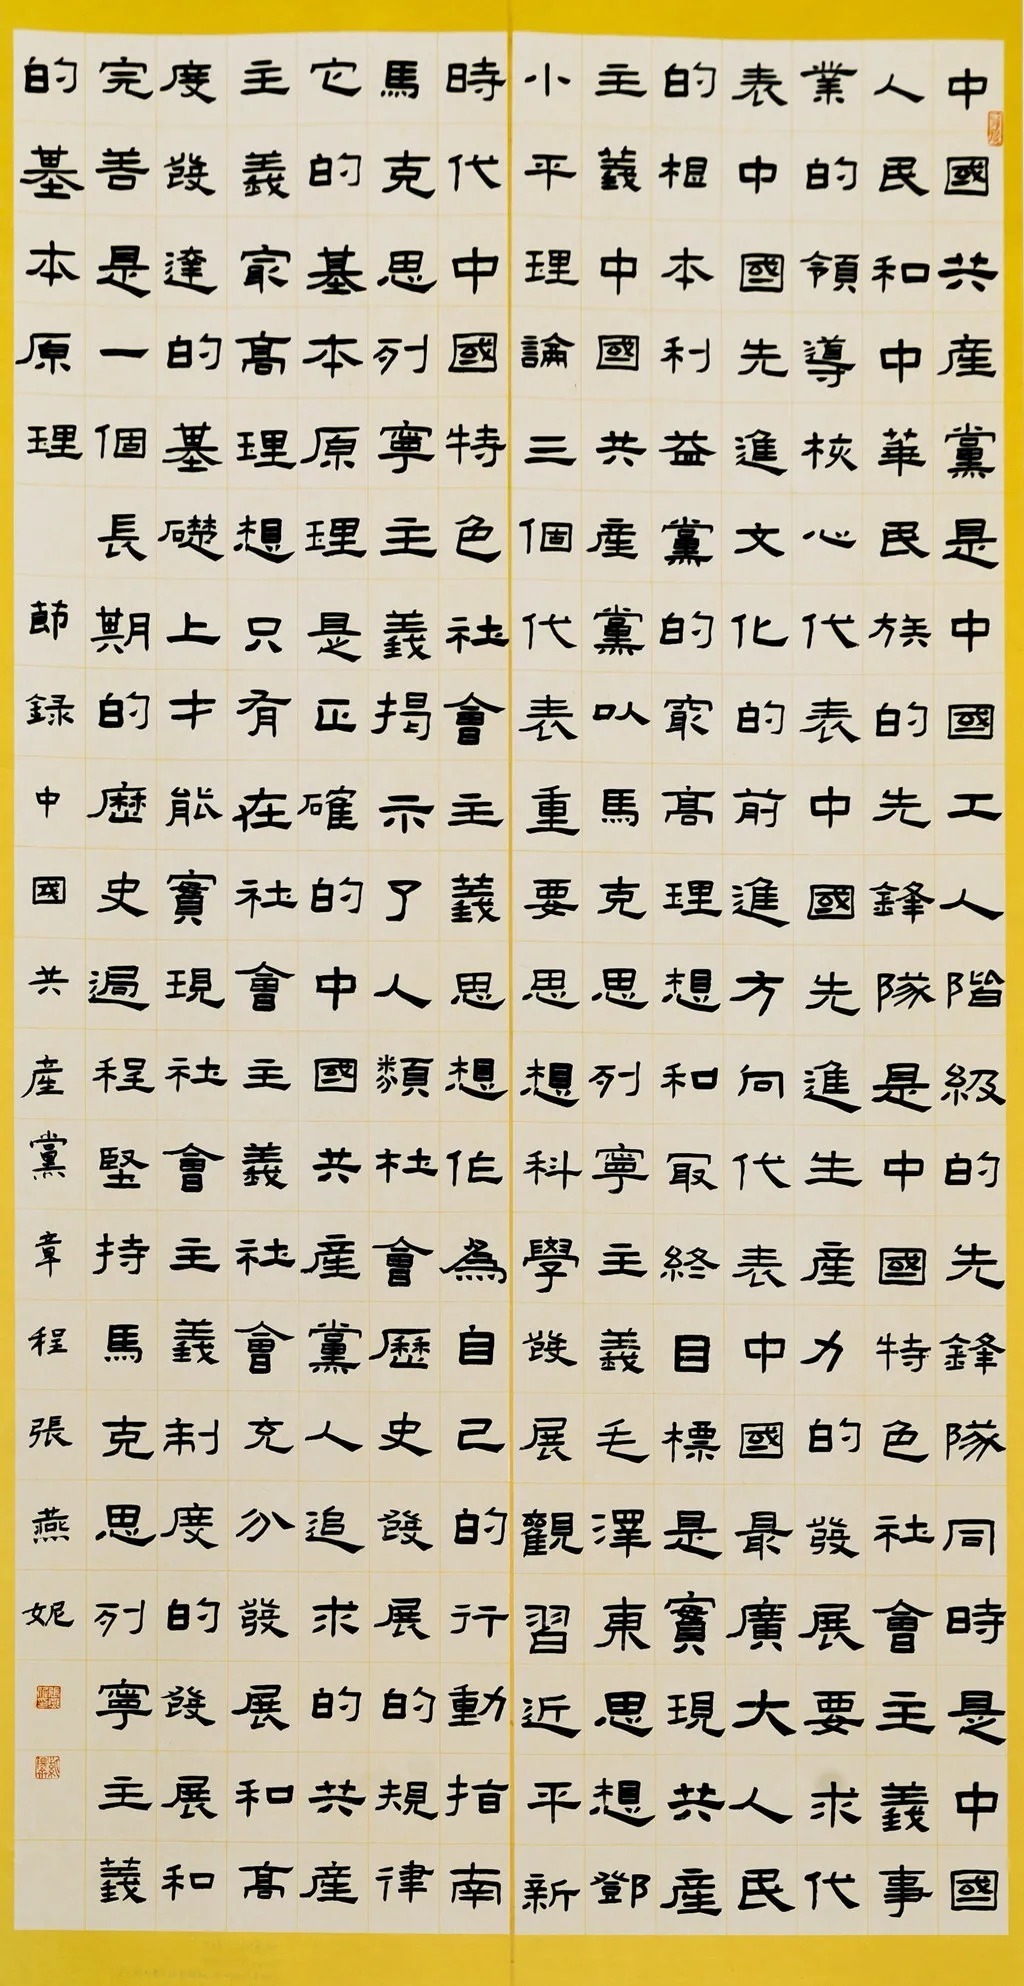 中國共産黨是中國工人階級的先鋒隊同時是中國
人民和中華民族的先鋒隊是中國特色社會主義事
業的領導核心代表中國先進生産力的發展要求代
表中國先進文化的前進方向代表中國最廣大人民
的根本利益黨的最高理想和最終目標是實現共産
主義中國共産黨以馬克思列寧主義毛澤東思想鄧
小平理論三個代表重要思想科學發展觀習近平新
時代中國特色社會主義思想作為自己的行動指南
馬克思列寧主義揭示了人類社會歷史發展的規律
它的基本原理是正確的中國共産黨人追求的共産
主義最高理想只有在社會主義社會充分發展和高
度發達的基礎上才能實現社會主義制度的發展和
完善是一個長期的歷史過程堅持馬克思列寧主義
的基本原理 節録中國共産黨章程張燕妮